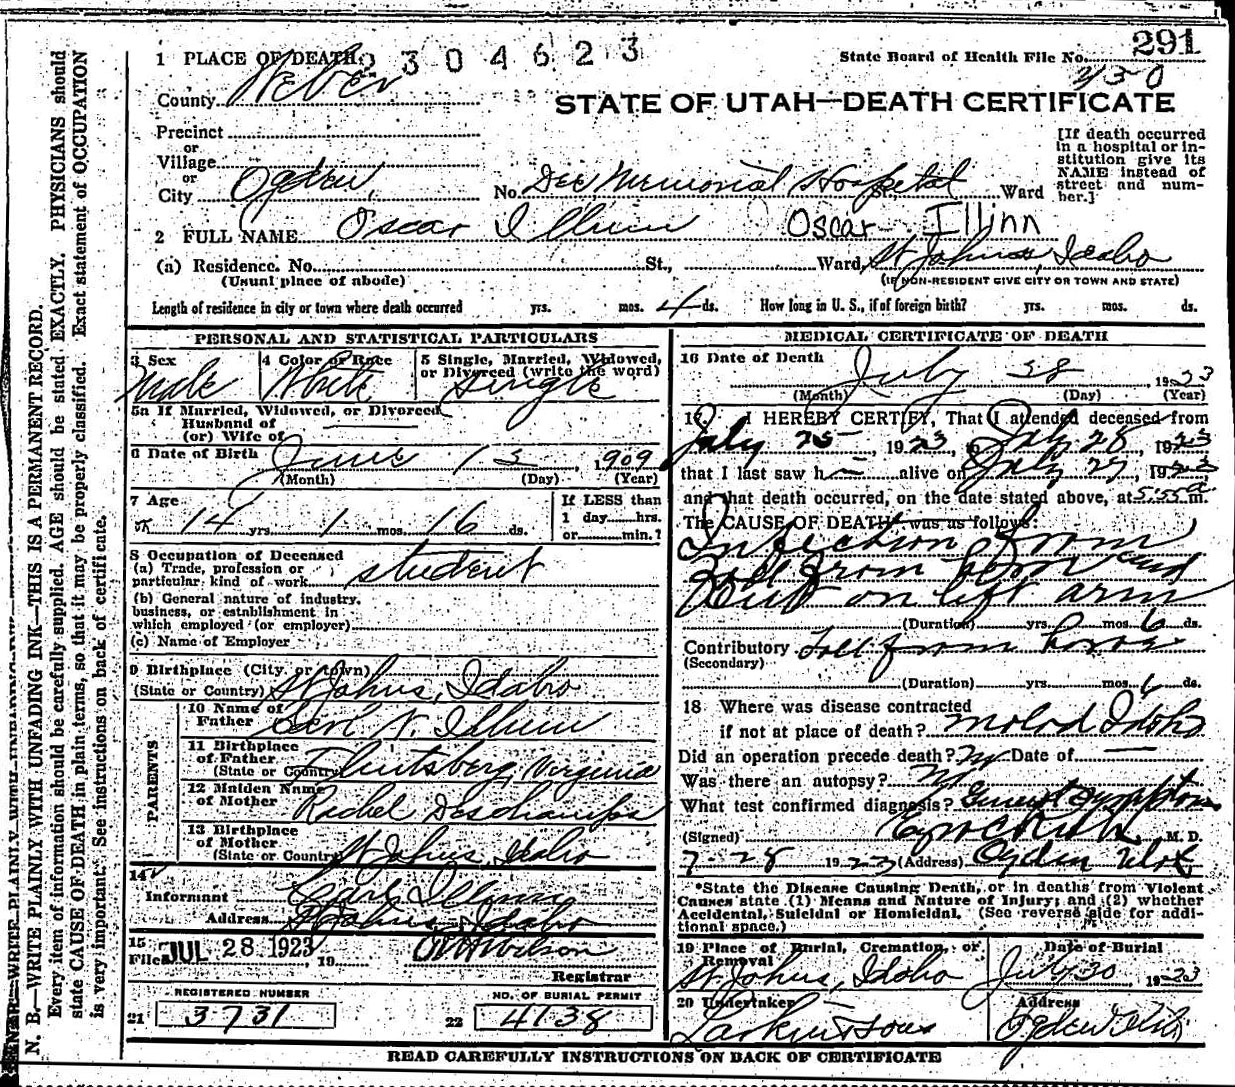 291
1 PLACE OF DEATH 2304623 State Board of Health File No. 430
County Weber STATE OF UTAH—DEATH CERTIFICATE
Precinct
or
Village
or
City Ogden, No. Dee Memorial Hospital St., Ward
[If death occurred in a hospital or in-
stitution give its
NAME instead of
street and num-
ber.]
2 FULL NAME Oscar Illum Oscar Illinn
(a) Residence. No. St., Ward, St Johns, Idaho
(Usual place of abode) (IF NON-RESIDENT GIVE CITY OR TOWN AND STATE)
Length of residence in city or town where death occurred yrs. mos. 4 ds. How long in U. S., if of foreign birth? yrs. mos. ds.
PERSONAL AND STATISTICAL PARTICULARS
3 Sex Male
4 Color or Race White
5 Single, Married, Widowed,
or Divorced (write the word) Single
5a If Married, Widowed, or Divorced
Husband of
(or) Wife of
6 Date of Birth June 13, 1909
(Month) (Day) (Year)
7 Age 14 yrs. 1 mos. 16 ds.
If LESS than
1 day hrs.
or min.?
8 Occupation of Deceased
(a) Trade, profession or
particular kind of work student
(b) General nature of industry,
business, or establishment in
which employed (or employer)
(c) Name of Employer
9 Birthplace (City or town)
(State or Country) St Johns, Idaho
PARENTS
10 Name of
Father N.
11 Birthplace
of Father
(State or Country) Virginia
12 Maiden Name
of Mother Rachel Deschamps
13 Birthplace
of Mother
(State or Country) St Johns, Idaho
14
Informant
Address St Johns, Idaho
15
Filed JUL 28 1923, 19 Wilson
Registrar
REGISTERED NUMBER
21 3731
NO. OF BURIAL PERMIT
22 4138
MEDICAL CERTIFICATE OF DEATH
16 Date of Death July 28, 1923
(Month) (Day) (Year)
17 I HEREBY CERTIFY, That I attended deceased from
July 25, 1923, to July 28, 1923
that I last saw h alive on July 27, 1923
and that death occurred, on the date stated above, at 5:55 a m.
The CAUSE OF DEATH was as follows:
Infection from
Fall from horse and
Cut on left arm
(Duration) yrs. mos. 6 ds.
Contributory Fall from horse
(Secondary)
(Duration) yrs. mos. 6 ds.
18 Where was disease contracted
if not at place of death? Malad Idaho
Did an operation precede death? No Date of
Was there an autopsy? No
What test confirmed diagnosis? Symptoms
(Signed) M. D.
7-28 1923 (Address) Ogden Utah
*State the Disease Causing Death, or in deaths from Violent
Causes state (1) Means and Nature of Injury; and (2) whether
Accidental, Suicidal or Homicidal. (See reverse side for addi-
tional space.)
19 Place of Burial, Cremation, or
Removal
St Johns, Idaho
Date of Burial
July 30, 1923
20 Undertaker
Larkin & Sons
Address
Ogden Utah
READ CAREFULLY INSTRUCTIONS ON BACK OF CERTIFICATE
N. B.—WRITE PLAINLY WITH UNFADING INK—THIS IS A PERMANENT RECORD.
Every item of information should be carefully supplied. AGE should be stated EXACTLY. PHYSICIANS should
state CAUSE OF DEATH in plain terms, so that it may be properly classified. Exact statement of OCCUPATION
is very important. See instructions on back of certificate.